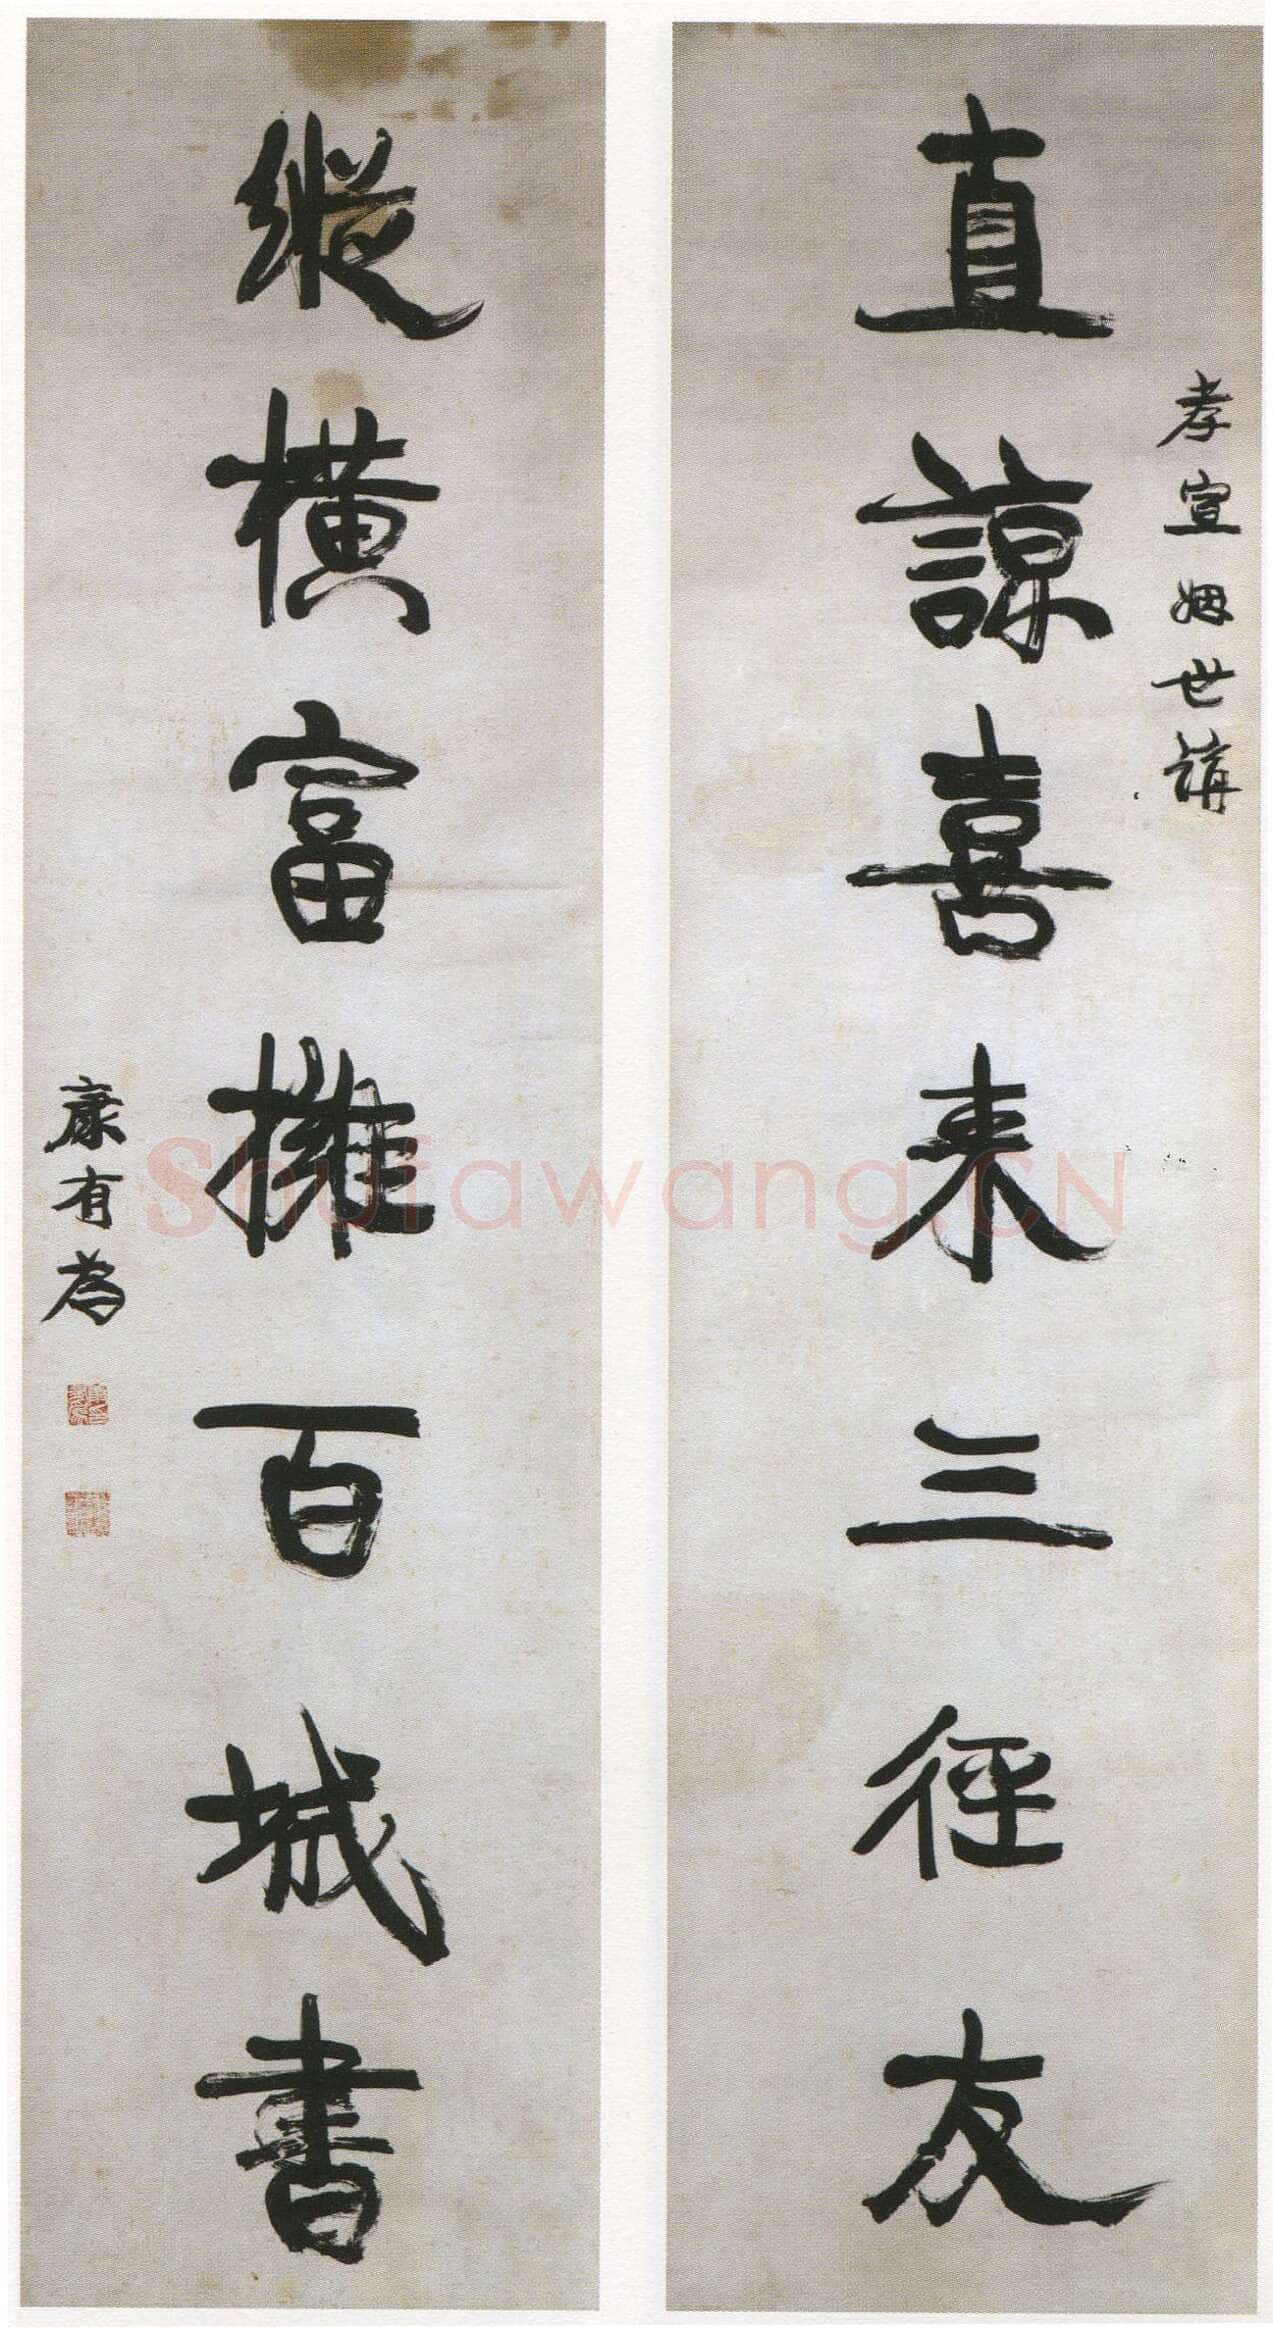 孝宣姻世講
直諒喜来三徑友
縱橫富擁百城書
康有為
Shufawang.CN